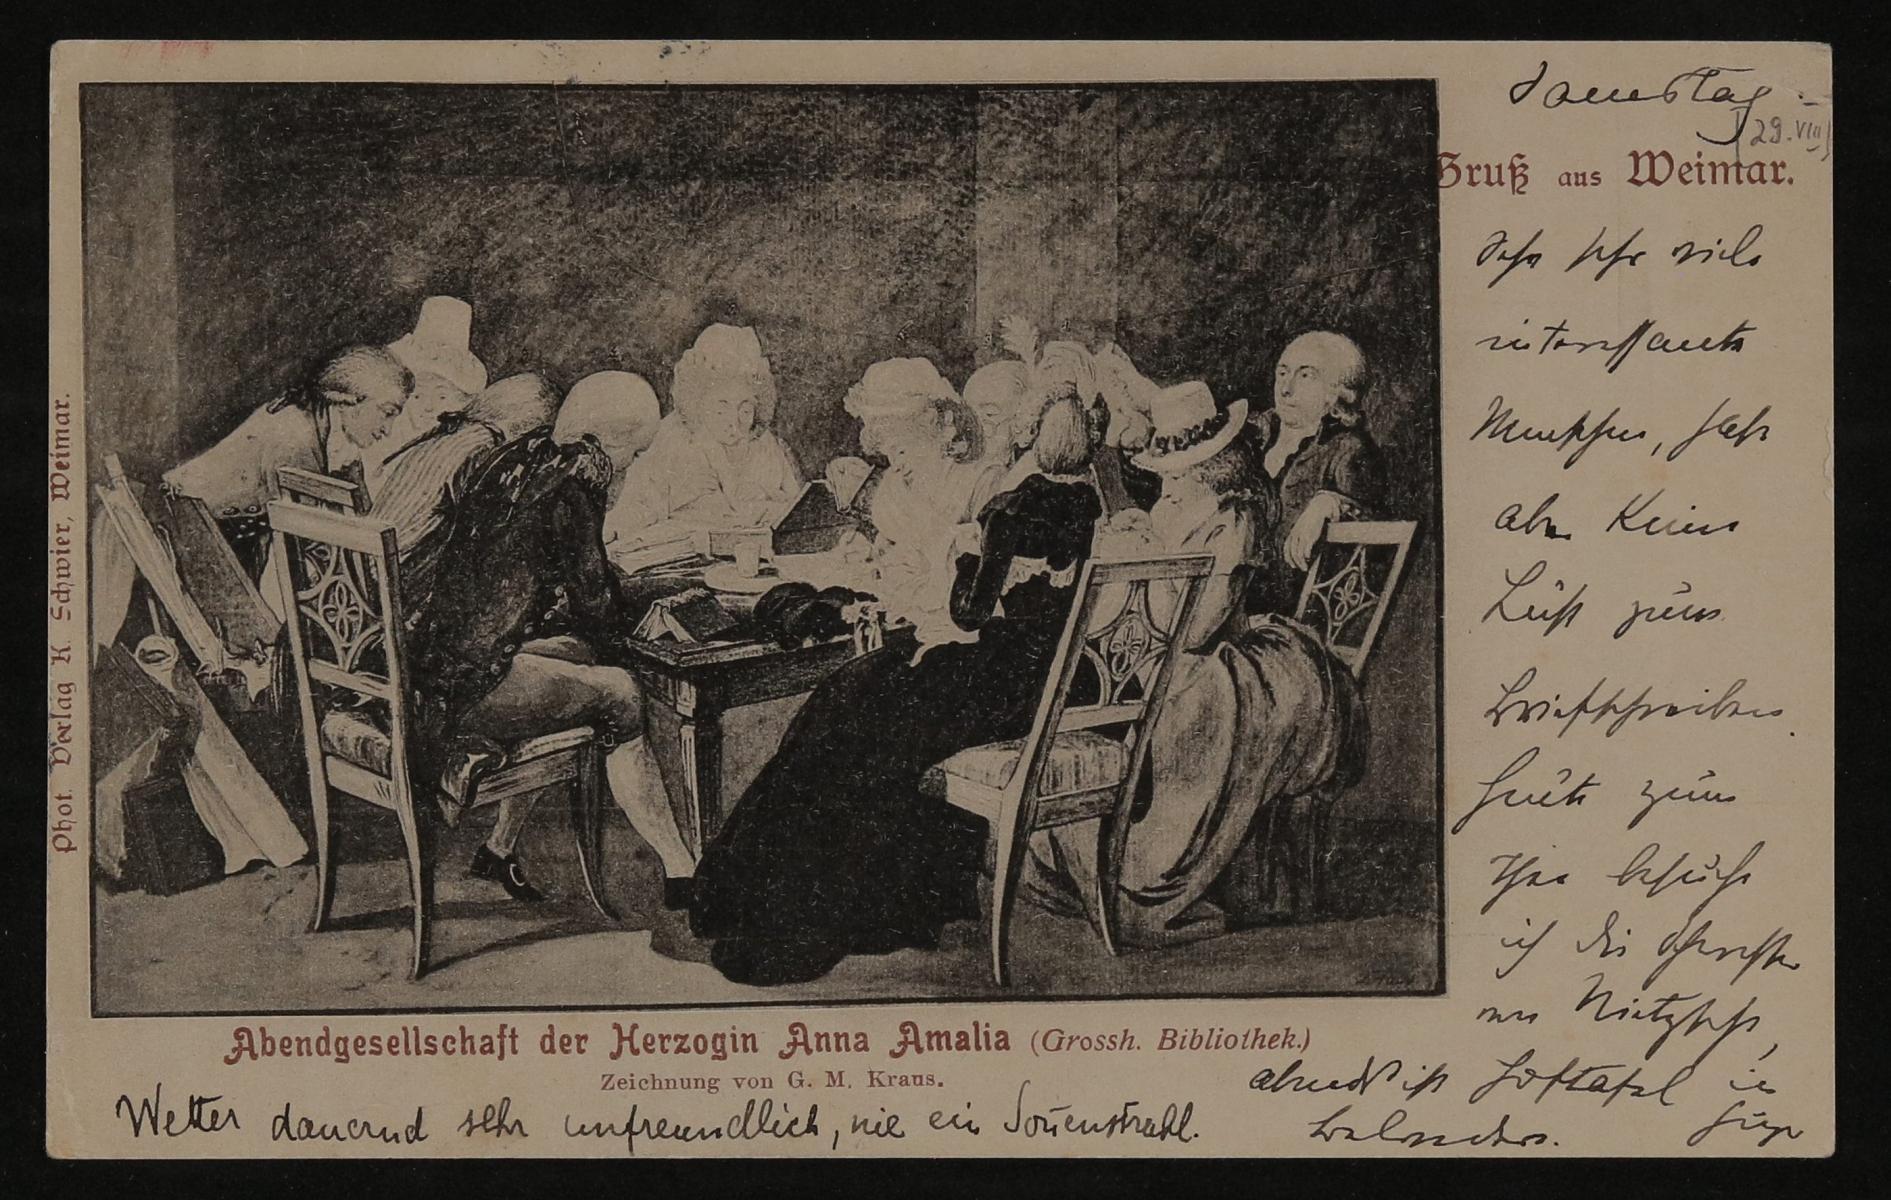 Samstag
[29. VIII]
Gruß aus Weimar.
Sehr sehr viele
interessante
Menschen, habe
aber keine
Lust zum
Briefschreiben.
Heute zum
Thee besuche
ich die Schwester
von Nietzsche,
abends ist Hoftafel in
Belvedere.
Hugo
Phot. Verlag K. Schwier, Weimar.
Abendgesellschaft der Herzogin Anna Amalia (Grossh. Bibliothek.)
Zeichnung von G. M. Kraus.
Wetter dauernd sehr unfreundlich, nie ein Sonenstrahl.